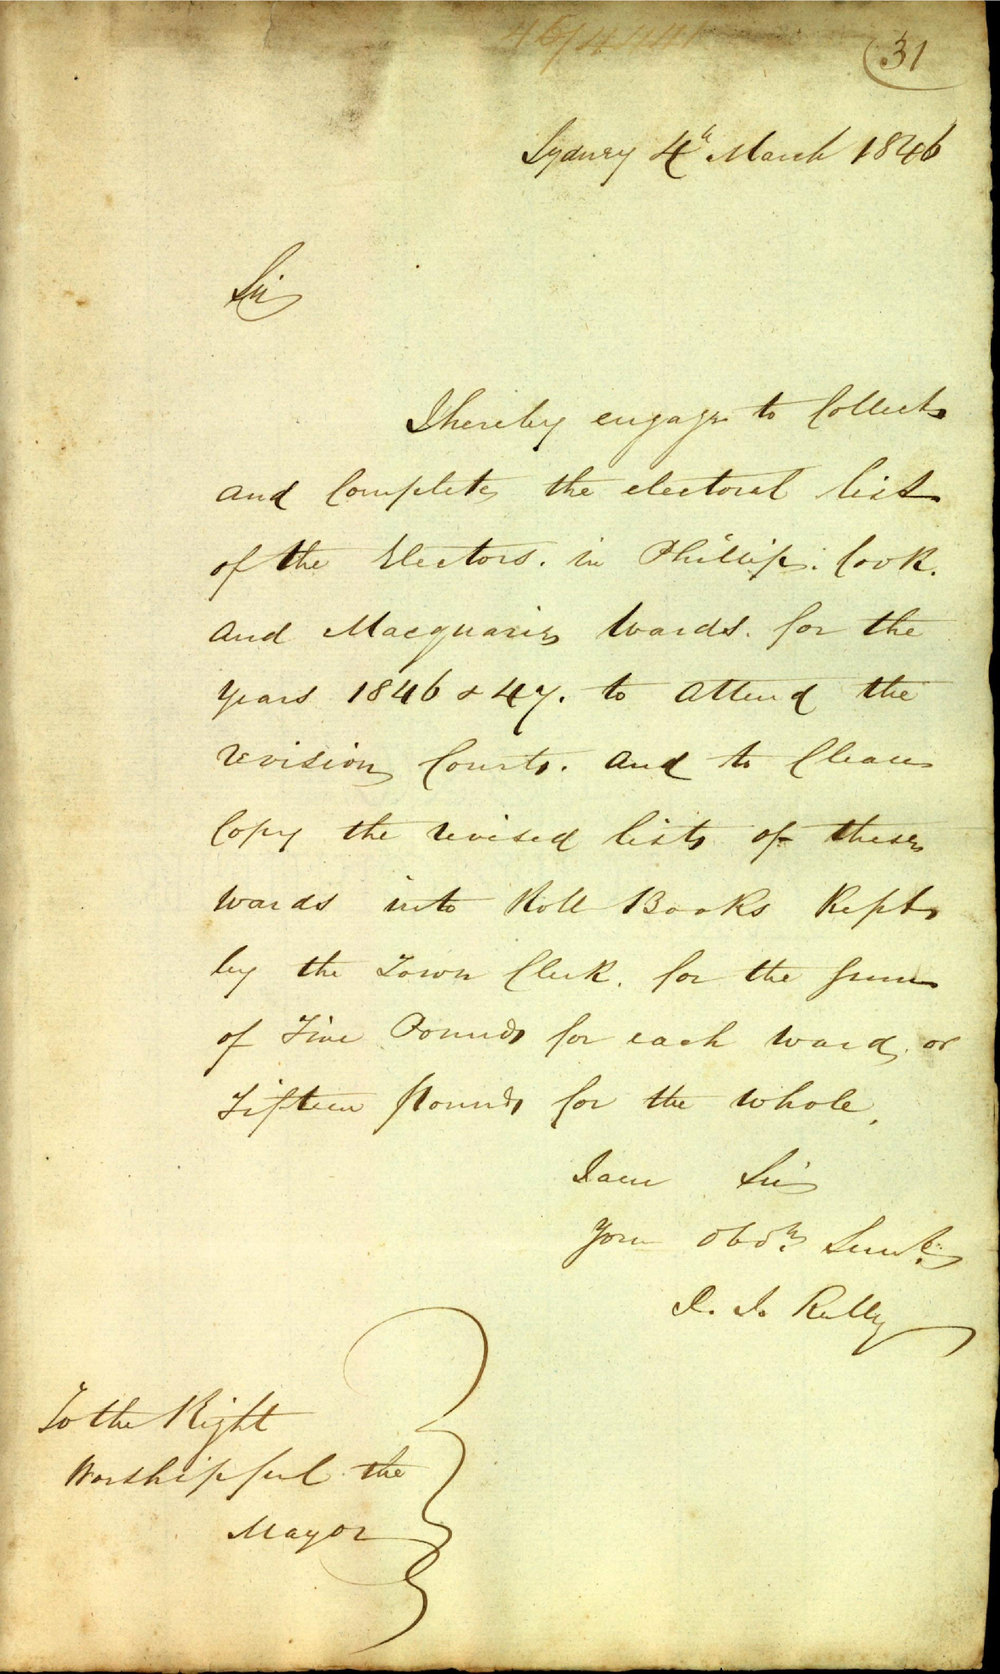 31
Sydney 4th March 1846
Sir
I hereby engage to Collect
and Complete the electoral list
of the Electors. in Phillip. Cook.
and Macquarie wards. for the
years 1846 & 47. to attend the
revision Courts. and to Clean
Copy the revised lists of these
wards into Roll Books Kept
by the Town Clerk. for the sum
of Five Pounds for each ward, or
Fifteen Pounds for the whole.
I am Sir
Your Obdt. Servt.
Reilly
To the Right
Worshipful the
Mayor